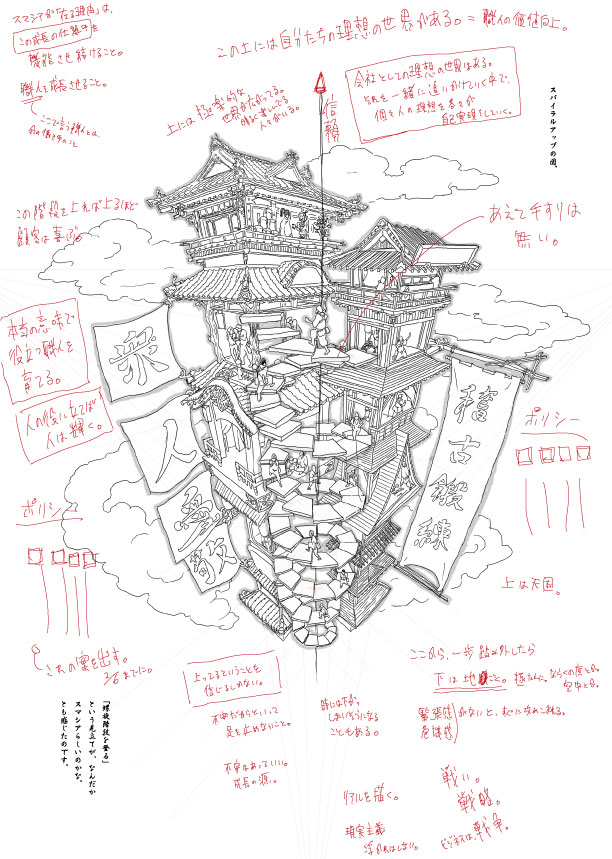 スマシアが「在る理由」は、
この成長の仕組を
機能させ続けること。
職人を成長させること。
ここで言う職人とは、
この上には自分たちの理想の世界がある。=職人の価値向上。
上には極楽的な
世界が広がってる。
人々がいる。
信頼
会社としての理想の世界はある。
それを一緒に追いかけていく中で、
個々人の理想を各々が
自己実現をしていく。
スパイラルアップの図。
この階段を上れば上るほど
顧客は喜ぶ。
あえて手すりは
無い。
本当の意味で
役立つ職人を
育てる。
人の役に立てば
人は輝く。
衆
人
愛敬
稽古鍛練
ポリシー
ポリシー
上は天国。
これの案を出す。
「螺旋階段を登る」
という見立てが、なんだか
スマシアらしいのかな。
とも感じたのです。
上ってるということを
信じるしかない。
不安だからといって
足を止めないこと。
不安はあっていい。
成長の源。
時には下がって
しまいそうになる
こともある。
リアルを描く。
現実主義
浮かれはしない。
ここから、一歩踏み外したら
下は地獄
緊張感
危機感
がないと、すぐに攻めこまれる。
戦い。
戦略。
ビジネスは、戦争。